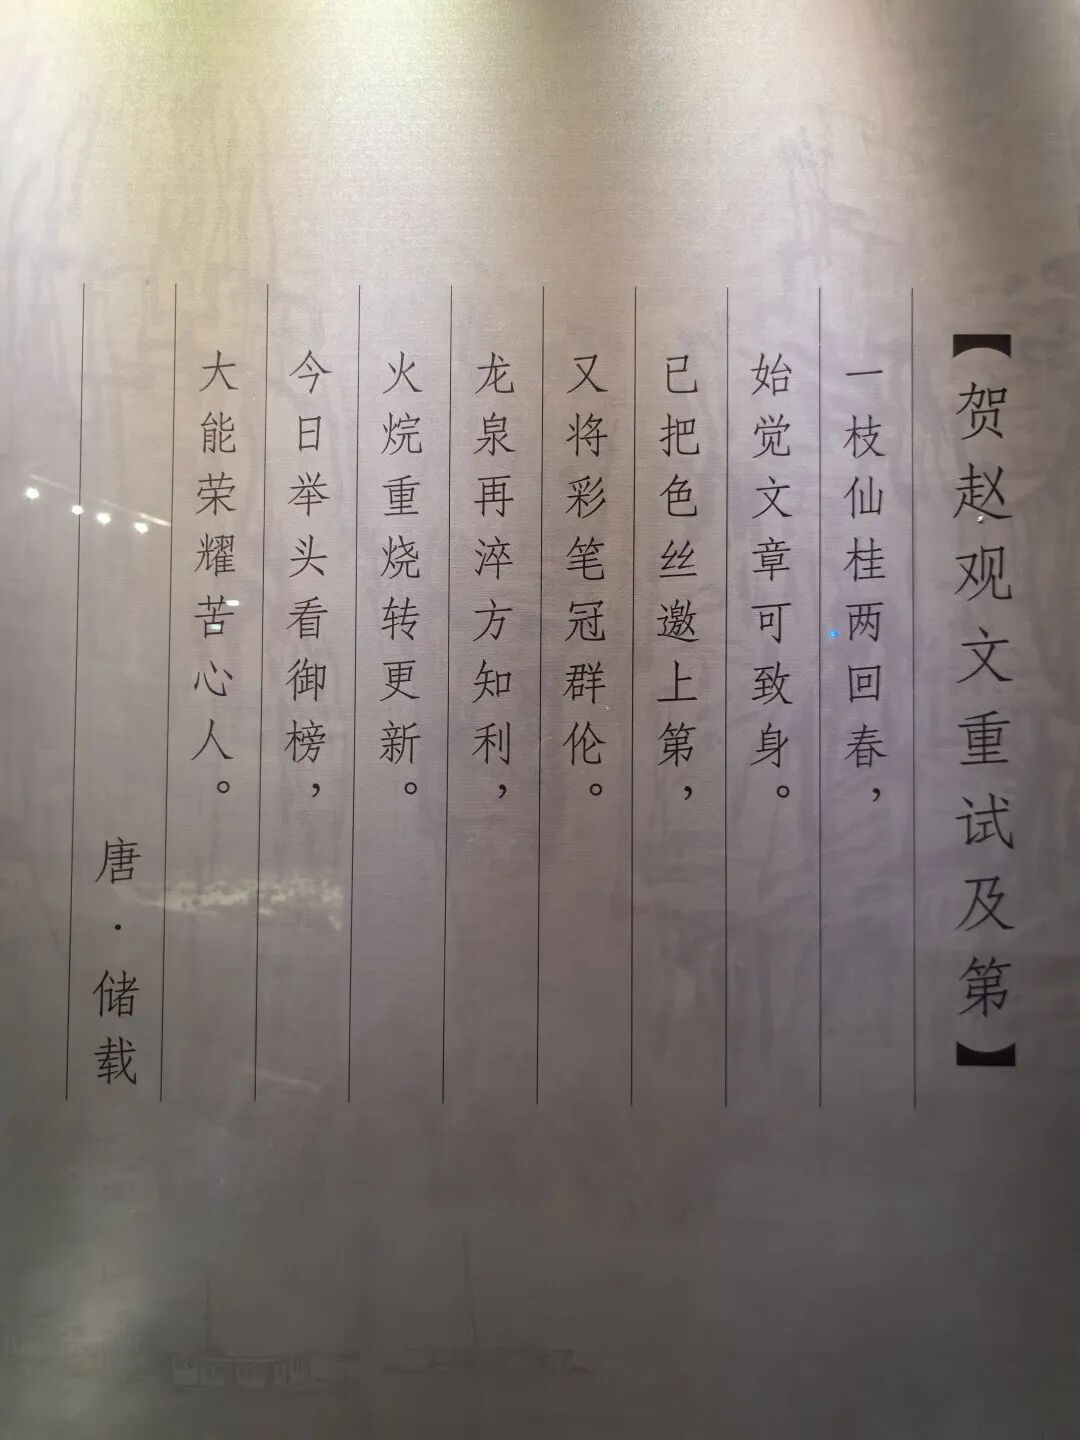 【贺赵观文重试及第】
一枝仙桂两回春，
始觉文章可致身。
已把色丝邀上第，
又将彩笔冠群伦。
龙泉再淬方知利，
火烷重烧转更新。
今日举头看御榜，
大能荣耀苦心人。
唐·储载